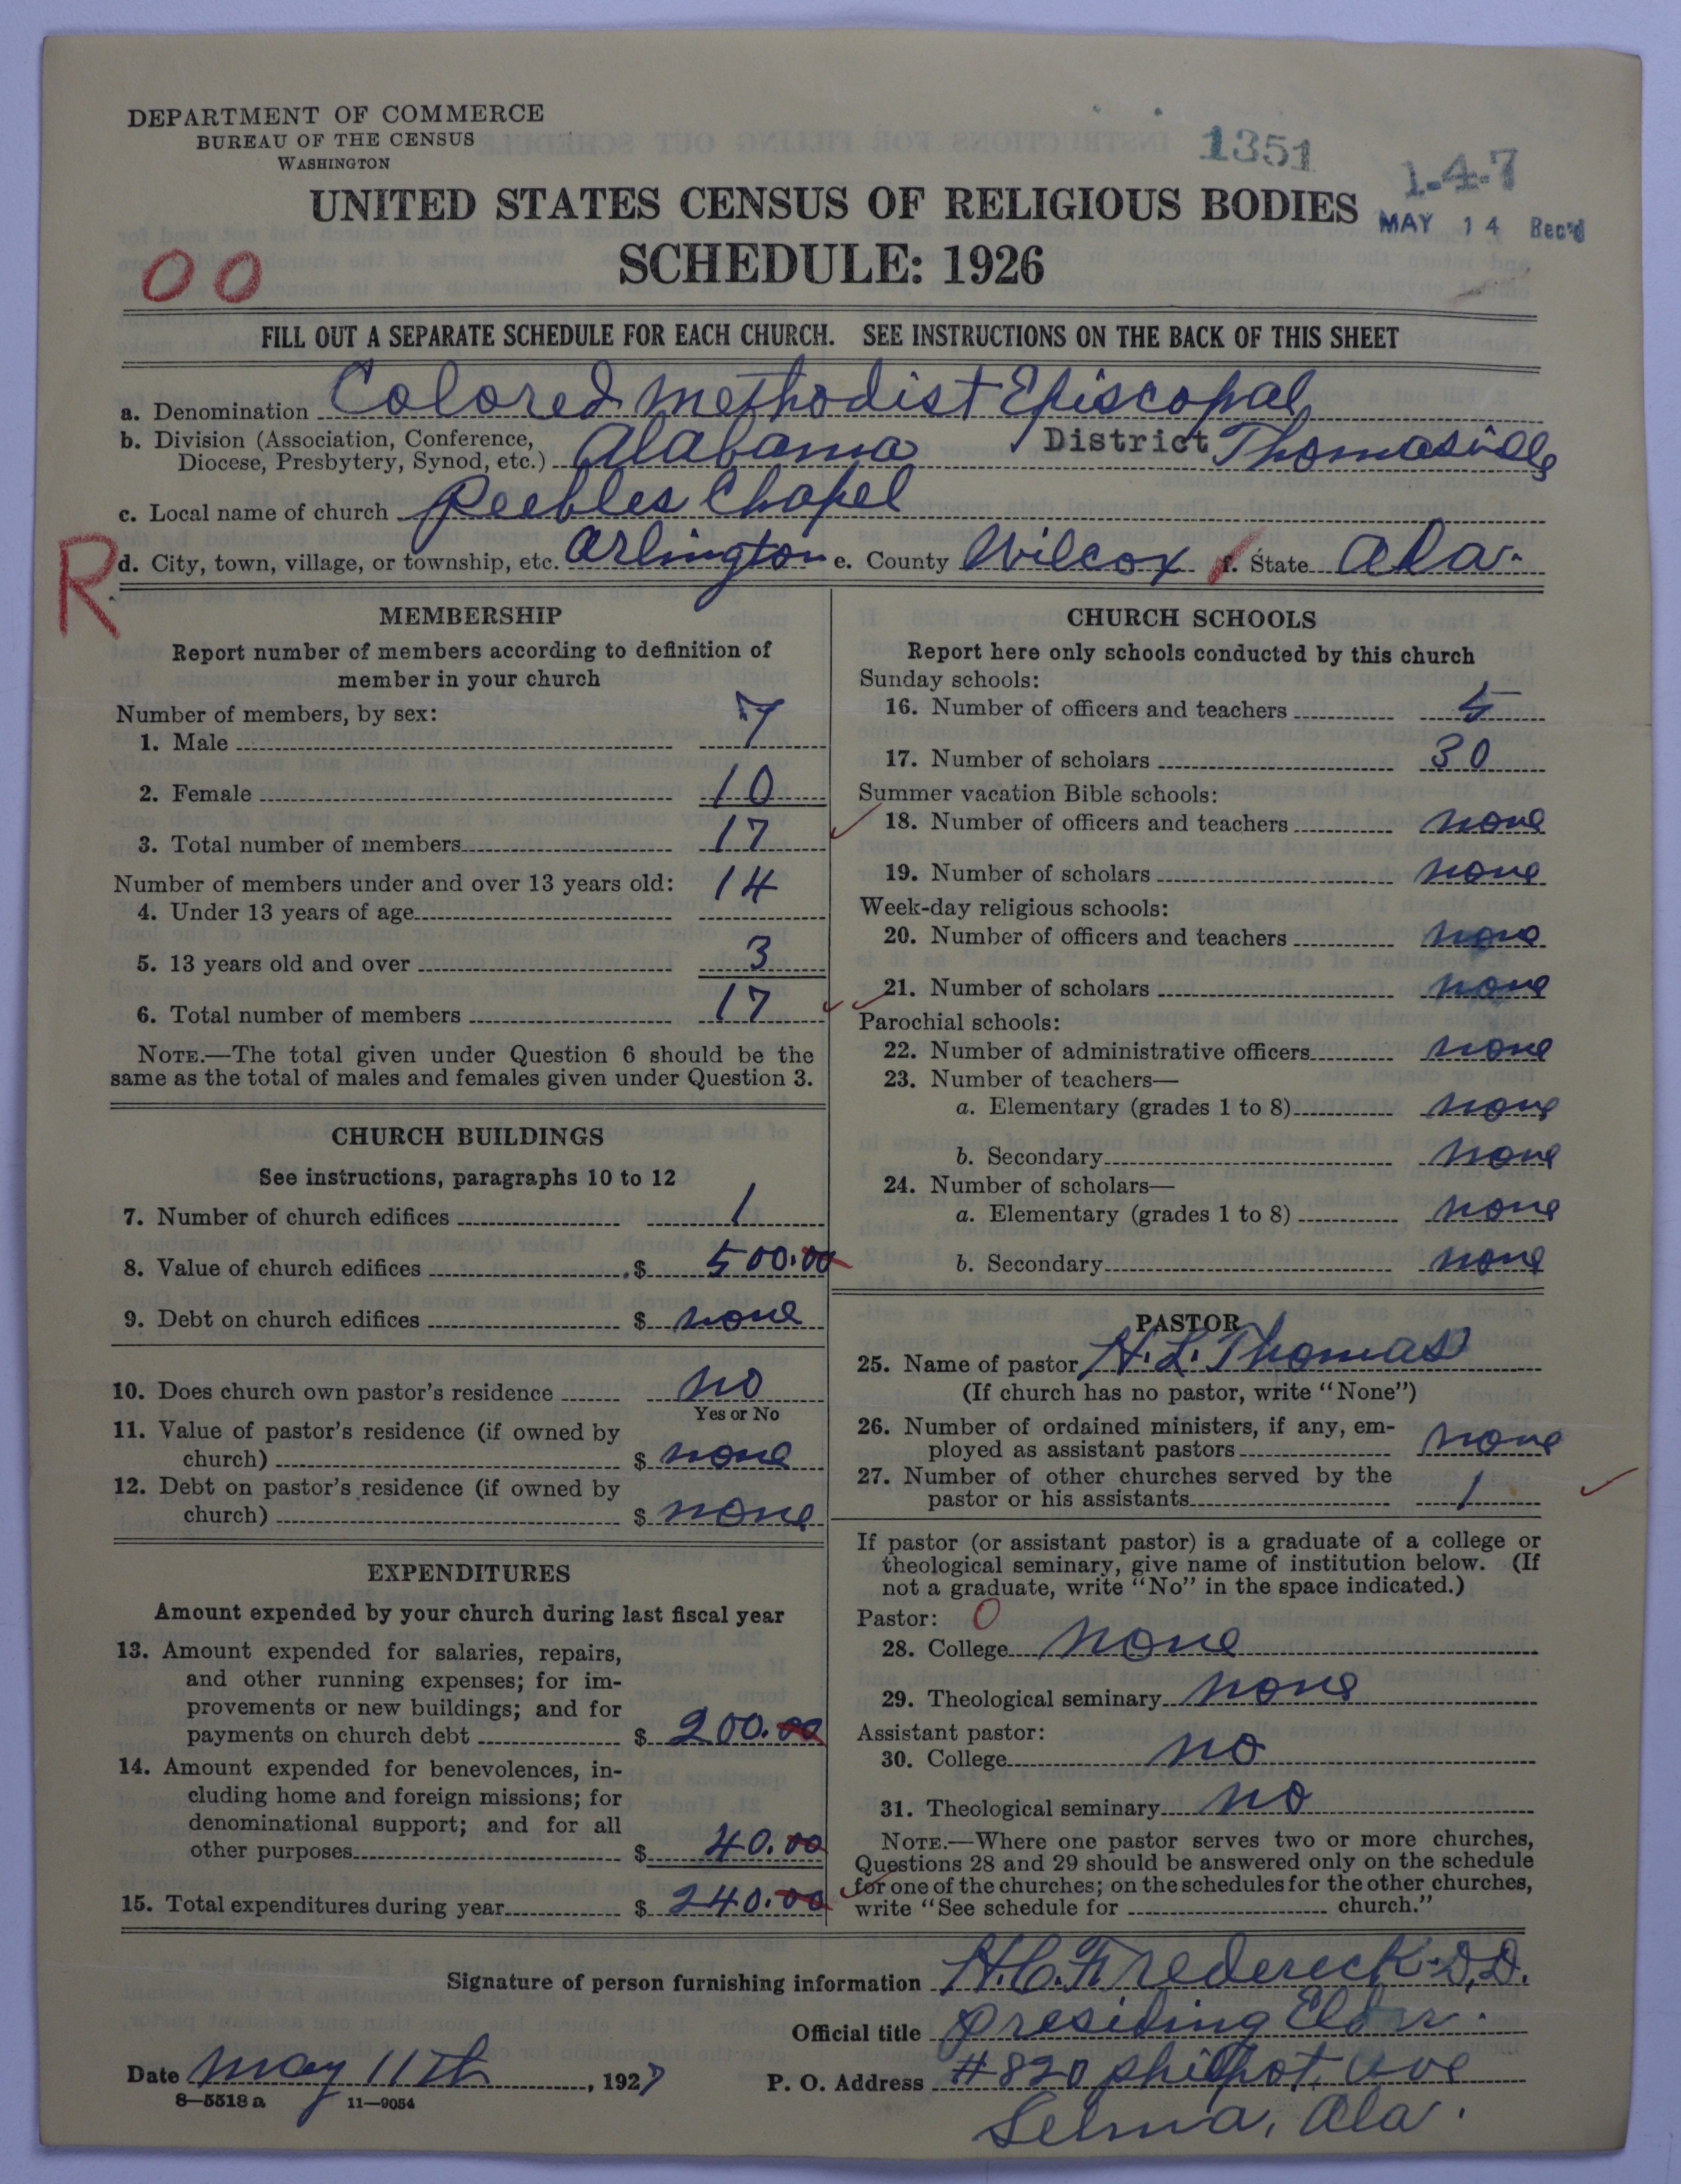 DEPARTMENT OF COMMERCE
BUREAU OF THE CENSUS
WASHINGTON
1351
1-4-7
UNITED STATES CENSUS OF RELIGIOUS BODIES
MAY 14 Rec'd
SCHEDULE: 1926
00
FILL OUT A SEPARATE SCHEDULE FOR EACH CHURCH. SEE INSTRUCTIONS ON THE BACK OF THIS SHEET
a. Denomination Colored Methodist Episcopal
b. Division (Association, Conference, Diocese, Presbytery, Synod, etc.) Alabama District Thomasville
c. Local name of church Peebles Chapel
R
d. City, town, village, or township, etc. Arlington e. County Wilcox f. State Ala.
MEMBERSHIP
Report number of members according to definition of
member in your church
Number of members, by sex:
1. Male 7
2. Female 10
3. Total number of members 17
Number of members under and over 13 years old:
4. Under 13 years of age 14
5. 13 years old and over 3
6. Total number of members 17
NOTE.—The total given under Question 6 should be the
same as the total of males and females given under Question 3.
CHURCH BUILDINGS
See instructions, paragraphs 10 to 12
7. Number of church edifices 1
8. Value of church edifices $ 500.00
9. Debt on church edifices $ none
10. Does church own pastor's residence no
Yes or No
11. Value of pastor's residence (if owned by
church) $ none
12. Debt on pastor's residence (if owned by
church) $ none
EXPENDITURES
Amount expended by your church during last fiscal year
13. Amount expended for salaries, repairs,
and other running expenses; for im-
provements or new buildings; and for
payments on church debt $ 200.00
14. Amount expended for benevolences, in-
cluding home and foreign missions; for
denominational support; and for all
other purposes $ 40.00
15. Total expenditures during year $ 240.00
CHURCH SCHOOLS
Report here only schools conducted by this church
Sunday schools:
16. Number of officers and teachers 5
17. Number of scholars 30
Summer vacation Bible schools:
18. Number of officers and teachers none
19. Number of scholars none
Week-day religious schools:
20. Number of officers and teachers none
21. Number of scholars none
Parochial schools:
22. Number of administrative officers none
23. Number of teachers—
a. Elementary (grades 1 to 8) none
b. Secondary none
24. Number of scholars—
a. Elementary (grades 1 to 8) none
b. Secondary none
PASTOR
25. Name of pastor H. L. Thomas
(If church has no pastor, write "None")
26. Number of ordained ministers, if any, em-
ployed as assistant pastors none
27. Number of other churches served by the
pastor or his assistants 1
If pastor (or assistant pastor) is a graduate of a college or
theological seminary, give name of institution below. (If
not a graduate, write "No" in the space indicated.)
Pastor: 0
28. College none
29. Theological seminary none
Assistant pastor:
30. College no
31. Theological seminary no
NOTE.—Where one pastor serves two or more churches,
Questions 28 and 29 should be answered only on the schedule
for one of the churches; on the schedules for the other churches,
write "See schedule for church."
Signature of person furnishing information H. C. Frederick. D.D.
Official title Presiding Elder.
Date May 11th, 1927
P. O. Address #820 Philpot. Ave
Selma, Ala.
8—5518 a 11—9054